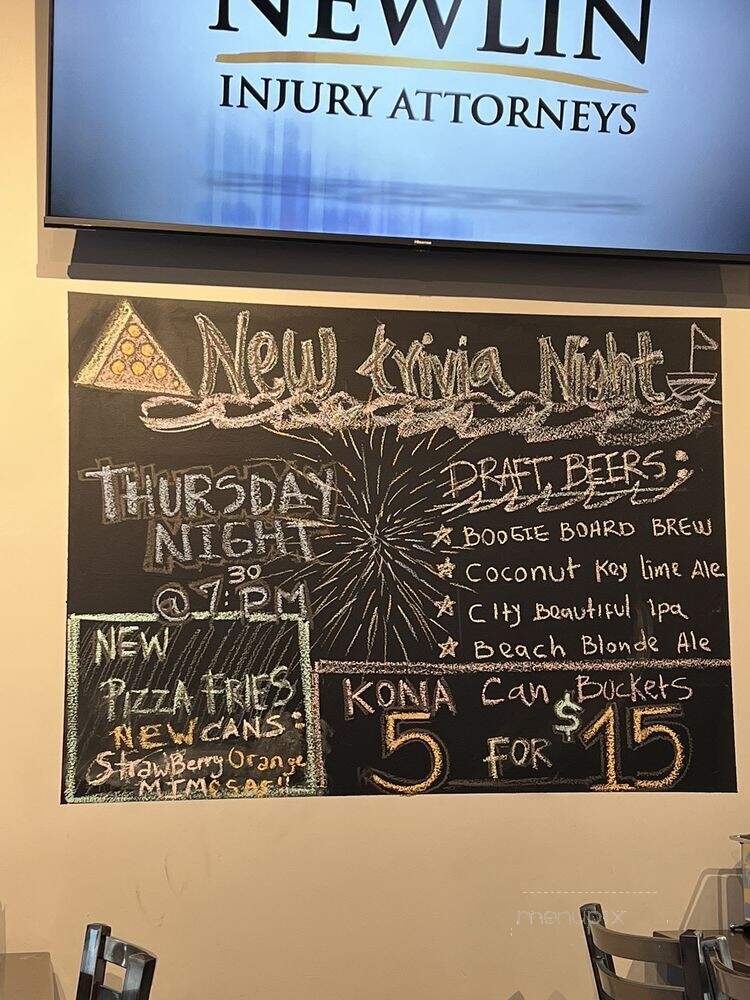 NEWLIN
INJURY ATTORNEYS
Hisense
New trivia Night
THURSDAY
NIGHT
@ 7:30 PM
DRAFT BEERS:
BOOGIE BOARD BREW
Coconut Key lime Ale
City Beautiful Ipa
Beach Blonde Ale
NEW
PIZZA FRIES
NEW CANS:
StrawBerry Orange
KONA Can Buckets
5 FOR $15
menupix